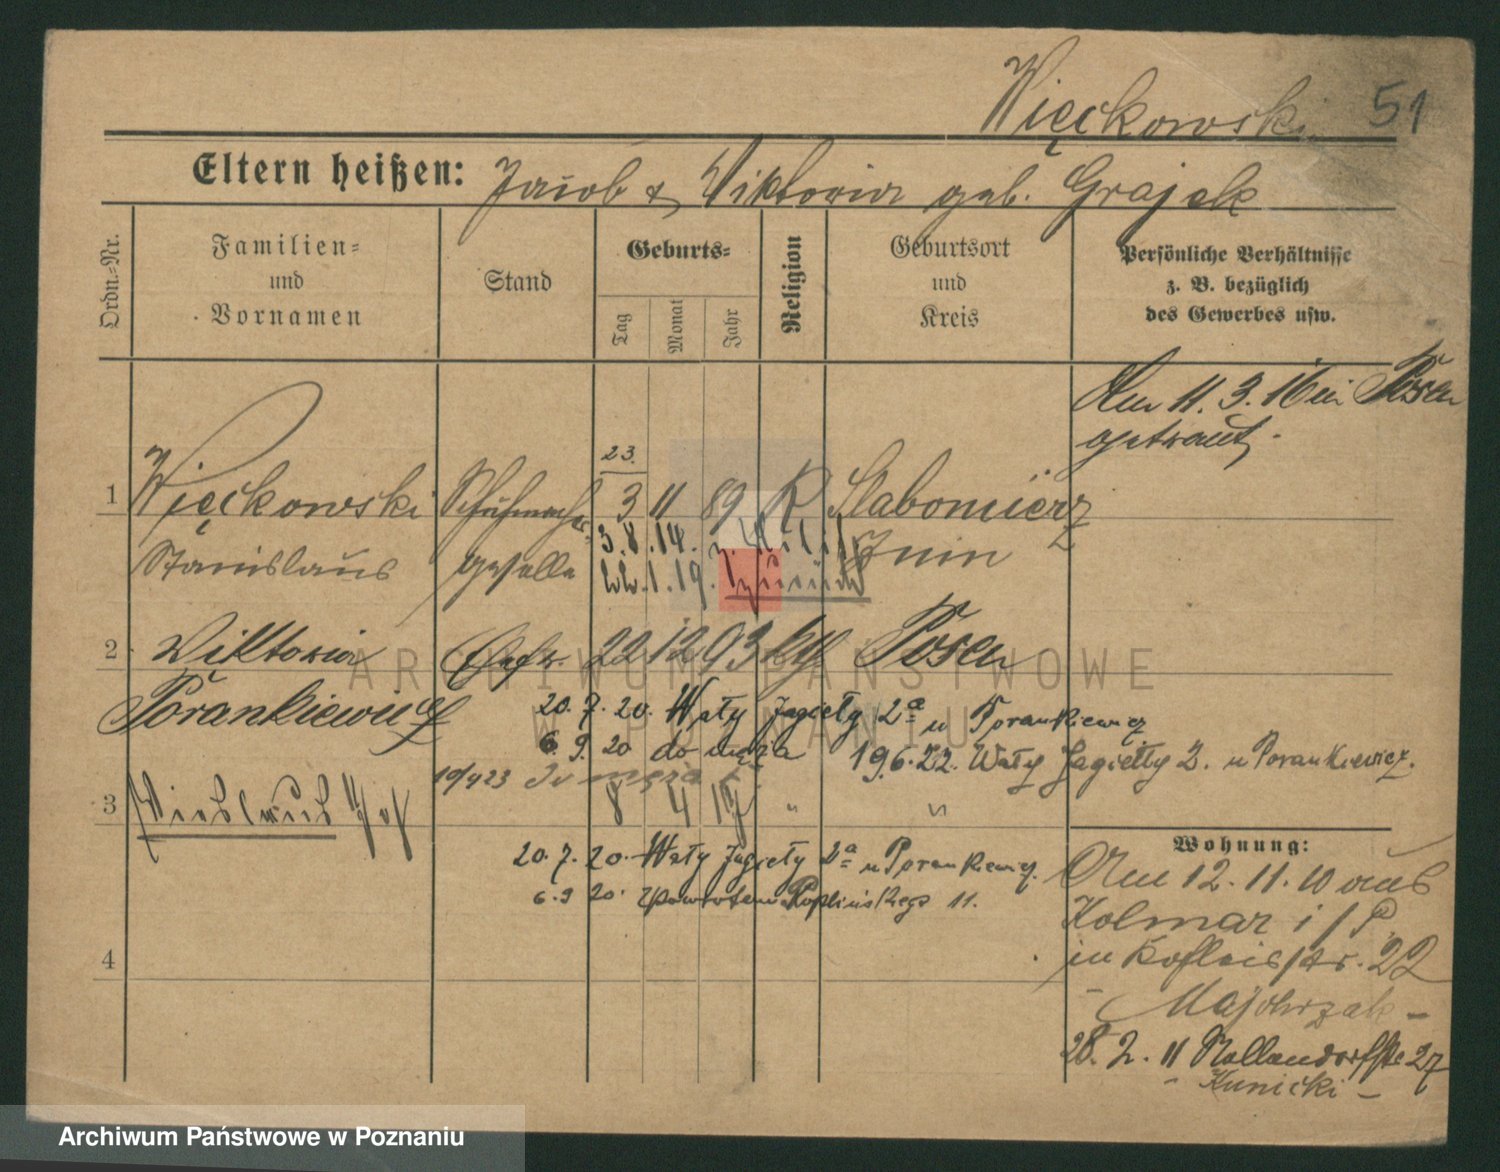 Więckowski 51
Eltern heißen: Jacob & Wiktoria geb. Grajek
Ordn.-Nr.
Familien- und Vornamen
Stand
Geburts-
Tag
Monat
Jahr
Religion
Geburtsort und Kreis
Persönliche Verhältnisse
z. B. bezüglich
des Gewerbes usw.
Am 11. 3. 16 in Posen
getraut.
23.
1 Więckowski Schuhmacher- 3 11 89 K Slabomierz
Stanislaus geselle
3. 8. 14. z. Milit. Znin
22. 1. 19. zurück
2 Wiktoria Ehefr. 22 12 93 kth Posen
Porankiewicz
20. 7. 20. Wały Jagiełły 2a u Porankiewicz
6. 9. 20 do męża
19.6.22. Wały Jagiełły 2. u Porankiewicz.
3 8 4 17 " "
20. 7. 20. Wały Jagiełły 2a u Porankiewicz.
6. 9 20. 11.
4
Wohnung:
Am 12. 11. 10 aus
Kolmar i/P.
in 22
- Majchrzak -
28. 2. 11 Nollendorfstr 27
- Kunicki -
ARCHIWUM PAŃSTWOWE
W POZNANIU
Archiwum Państwowe w Poznaniu